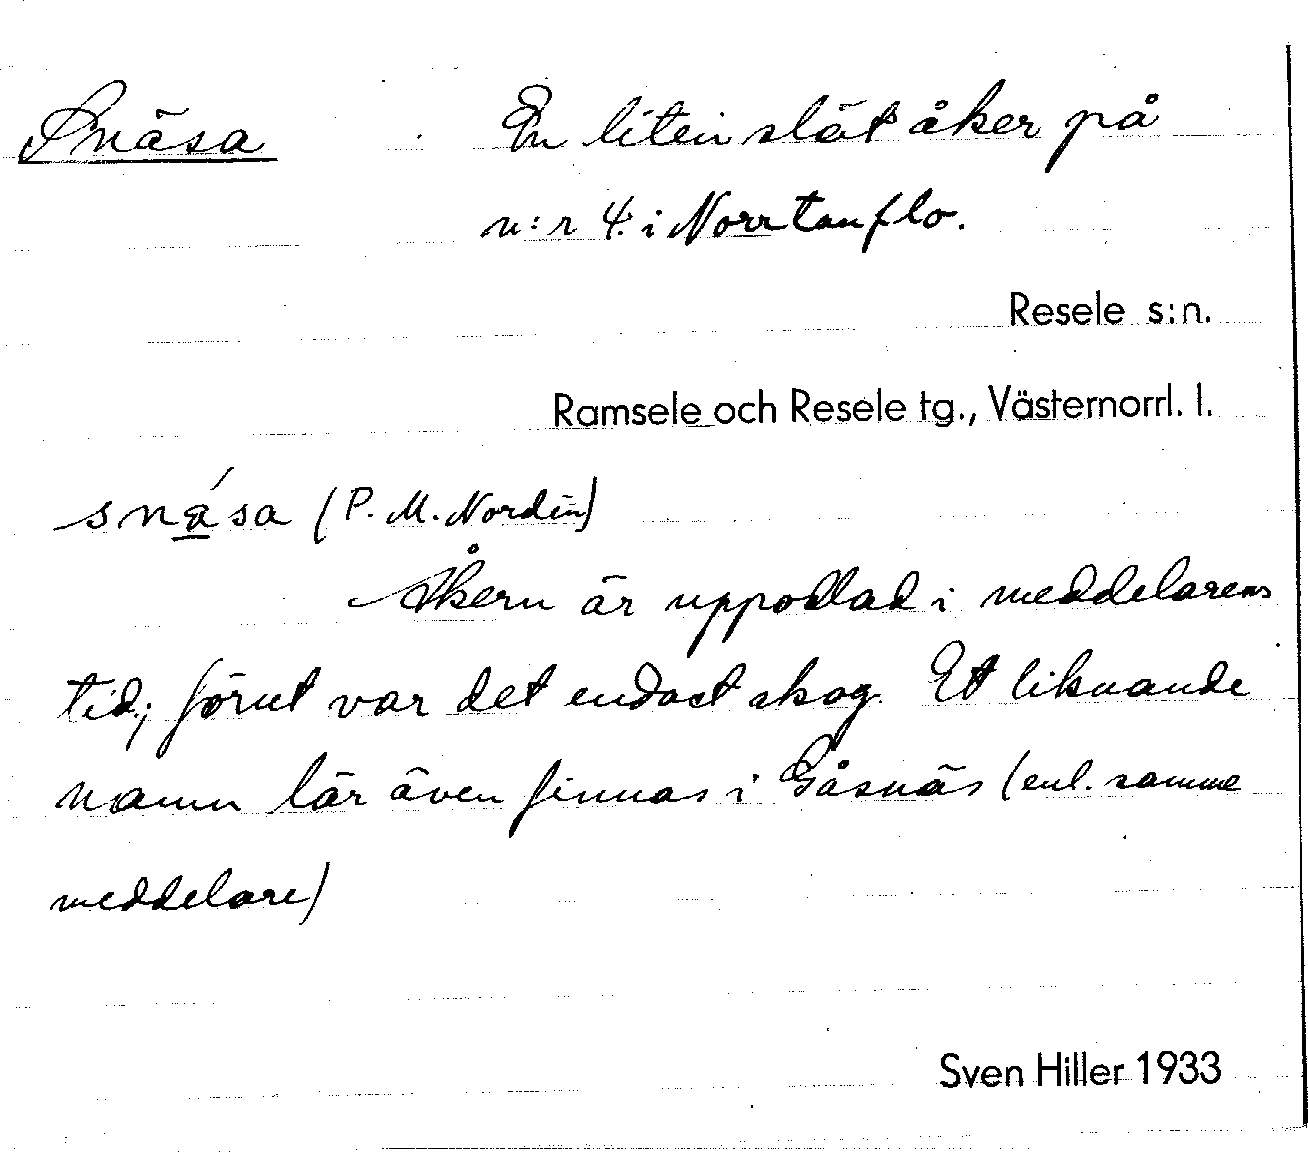 Snäsa En liten slät åker på
n:r 4 i Norrtanflo.
Resele s:n.
Ramsele och Resele tg., Västernorrl. l.
snása (P. M. Nordin)
Åkern är uppodlad i meddelarens
tid; förut var det endast skog. Ett liknande
namn lär även finnas i Gåsnäs (enl. samme
meddelare)
Sven Hiller 1933